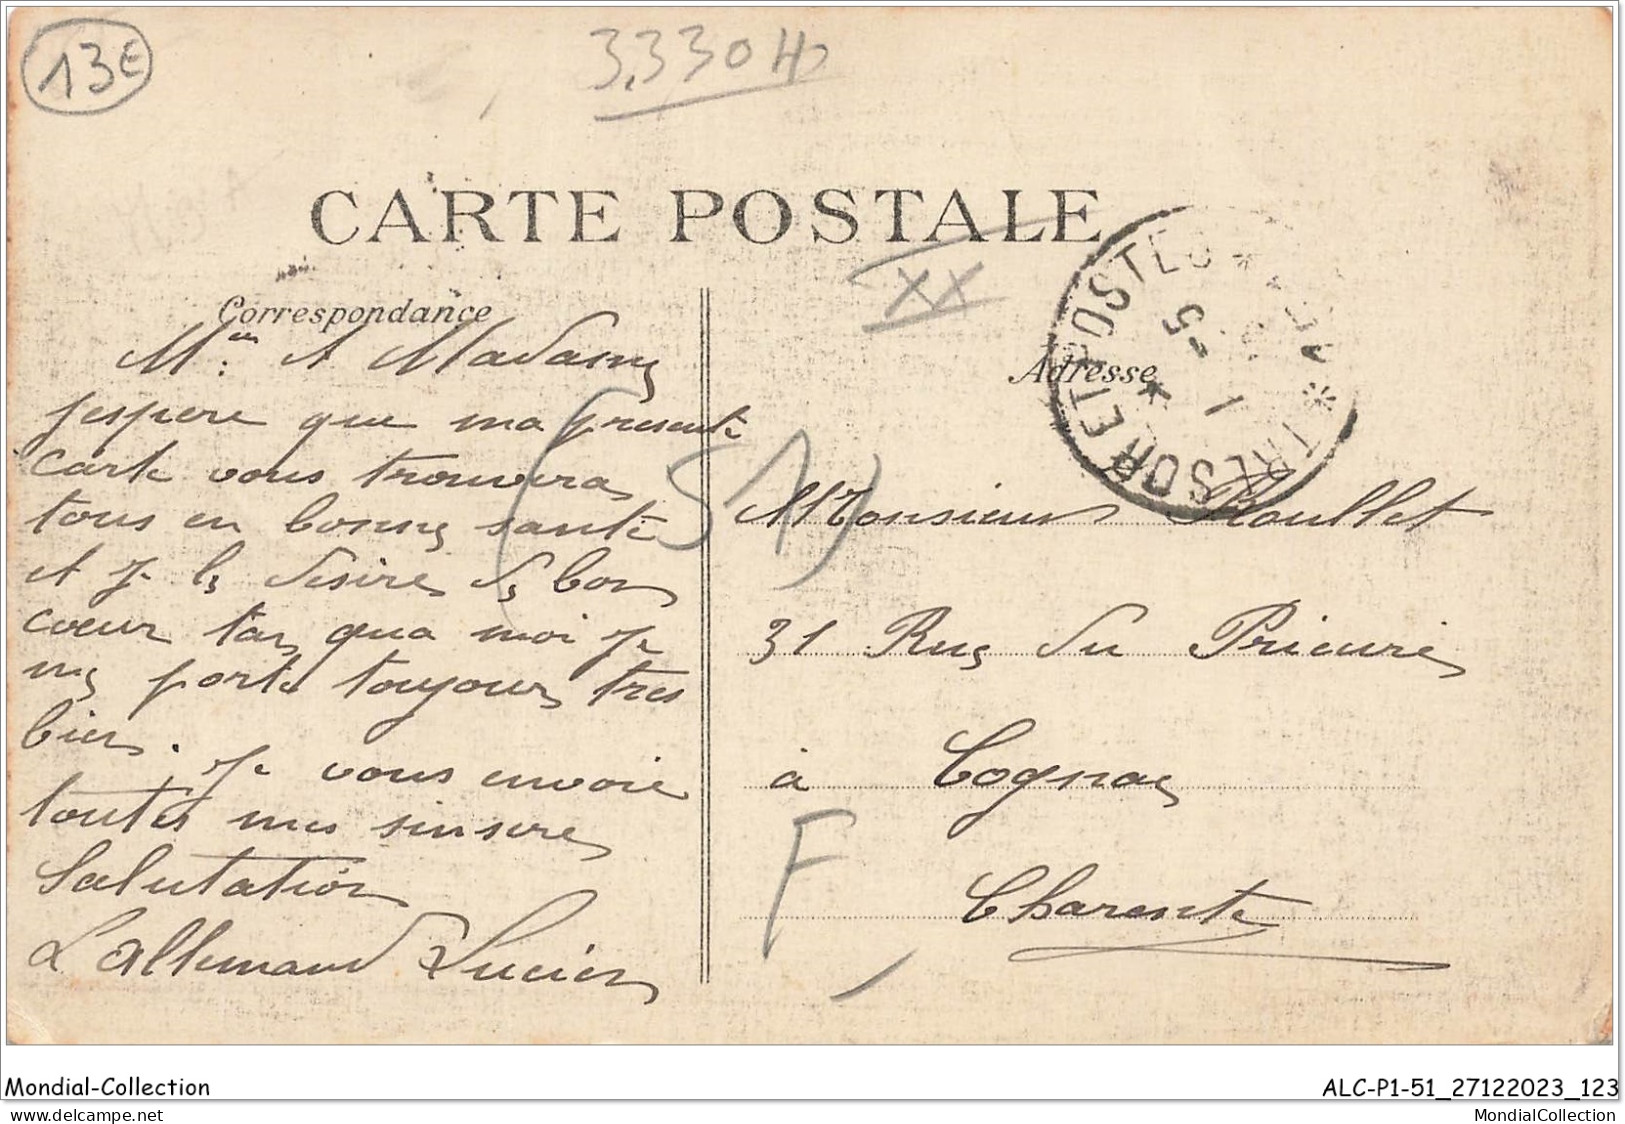 13€
3,330H
CARTE POSTALE
XX
Correspondance
Adresse
TRESOR ET POSTES
5
1
Mr. et Madame
j'espere que ma presente
carte vous trouvera
tous en bonne santé
et je le desire de bon
coeur tan qua moi je
me porte toujours tres
bien. Je vous envoie
toutes mes sinsere
Salutation
Lallemand Lucien
(51)
Monsieur Roullet
31 Rue du Prieuré
à Cognac
F
Charente
Mondial-Collection
ALC-P1-51_27122023_123
https://www.delcampe.net/en_US/collectibles/store/Mondial-Collection
MondialCollection